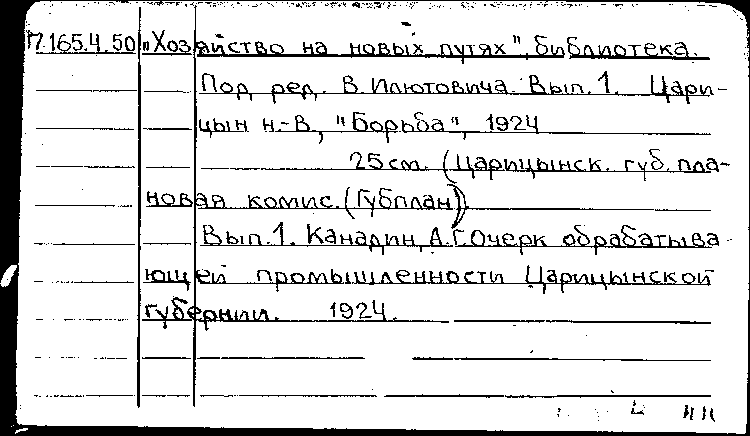 П.165.4.50 „Хозяйство на новых путях", библиотека.
Под ред. В. Илютовича. Вып. 1. Цари-
цын н.-В., "Борьба", 1924
25 см. (Царицынск. губ. пла-
новая комис. (Губплан)).
Вып. 1. Канадин, А.Г. Очерк обрабатыва-
ющей промышленности Царицынской
губернии. 1924.